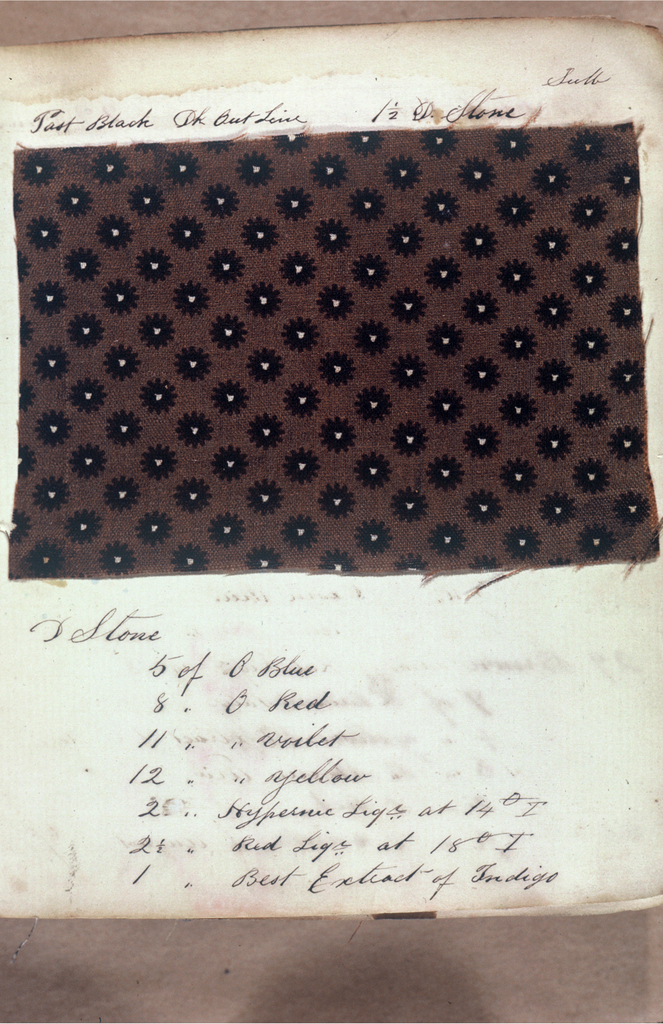 Fast Black Dk Out Line 1½ D. Stone
D Stone
5 of O Blue
8 " O Red
11 " " Voilet
12 " " Yellow
2 " Hypernic Liqr at 14° T
2½ " Red Liqr at 18° T
1 " Best Extract of Indigo